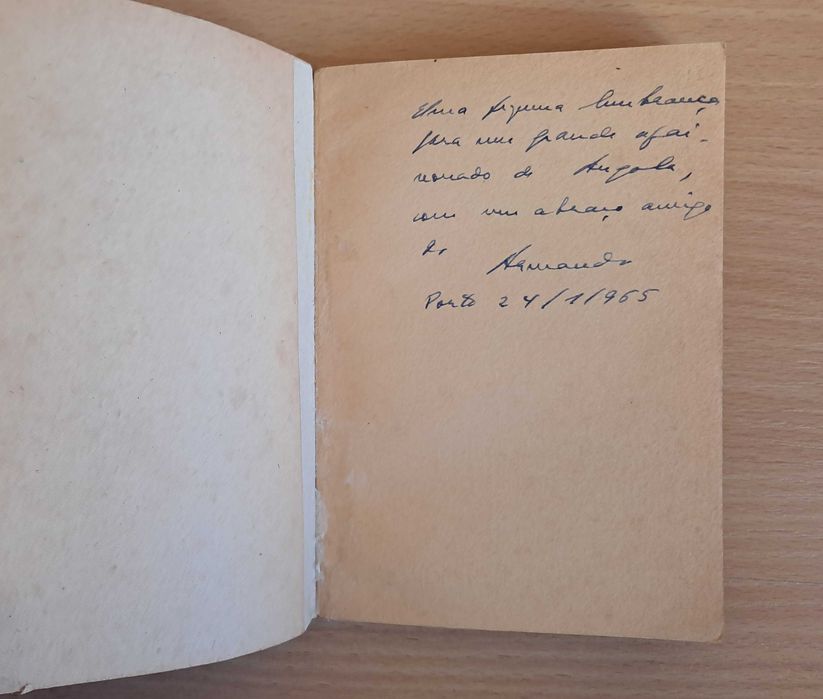 Uma pequena lembrança
para um grande apai-
xonado de Angola,
com um abraço amigo
do
Hernando
Porto 24/1/965